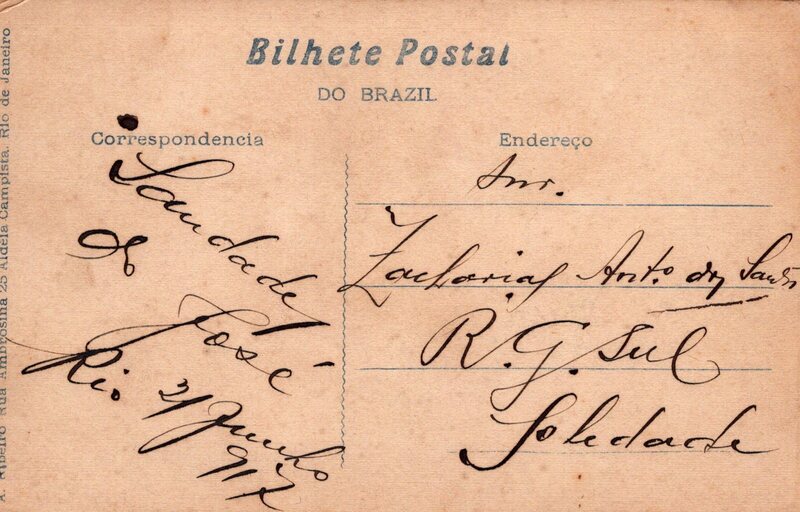 Bilhete Postal
DO BRAZIL
Correspondencia
Saudades
do
José
Rio 3/Junho
917
Endereço
Snr.
Zacharias Anto. dos Santos
R. G. Sul
Soledade
A. Ribeiro Rua Ambrosina 25 Aldeia Campista. Rio de Janeiro